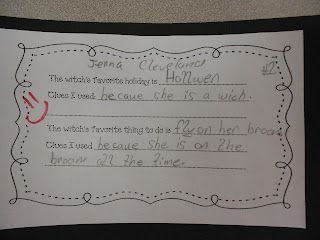 Jenna Cleveland
#2
The witch's favorite holiday is Hallwen
Clues I used becaue she is a wich.
The witch's favorite thing to do is fly on her broom
Clues I used because she is on the
broom all the time.